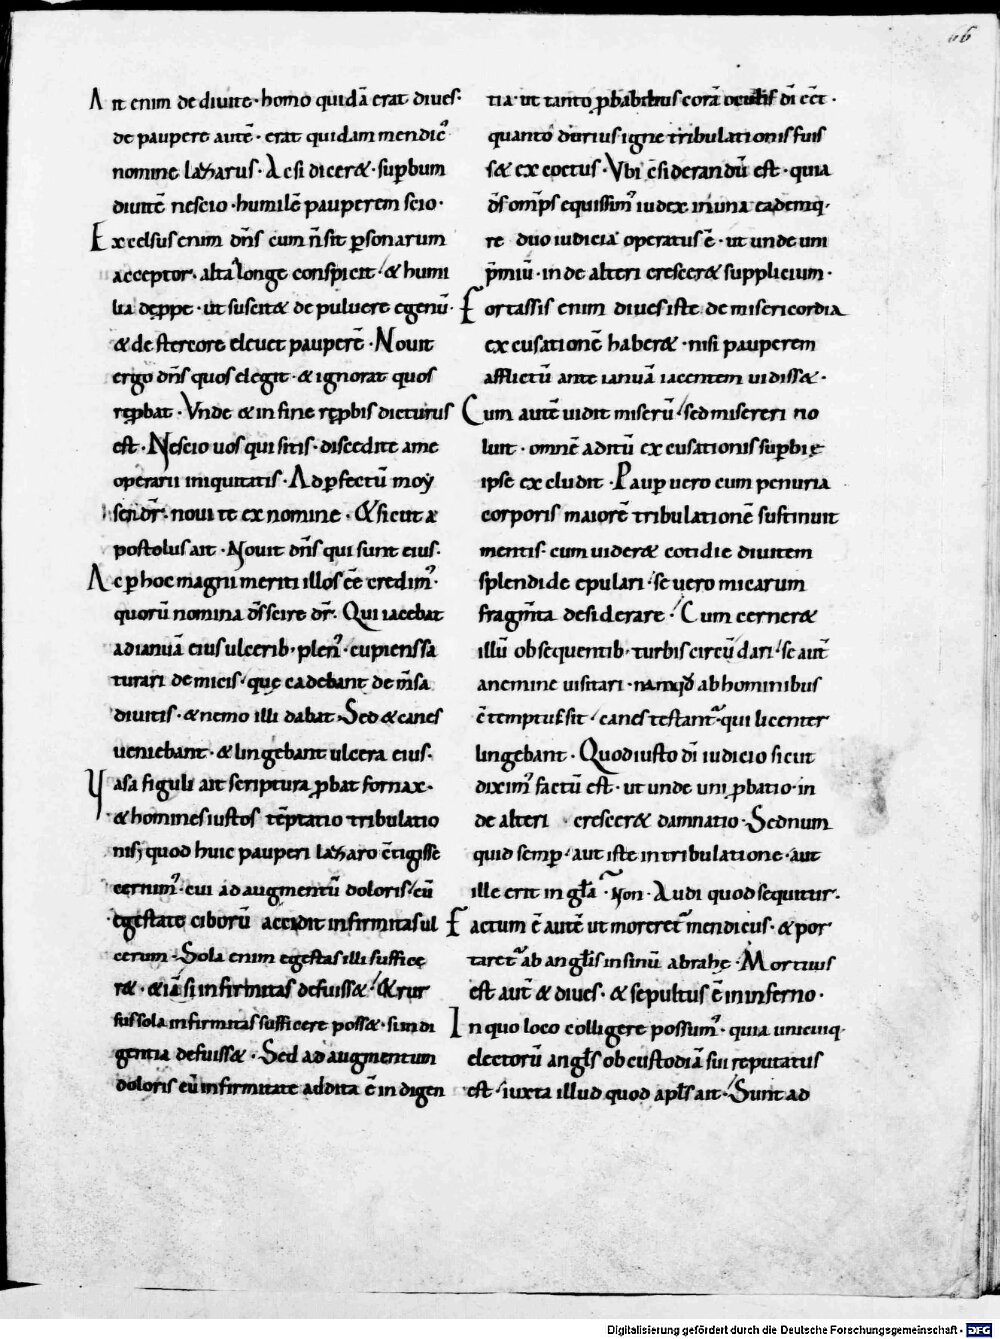 66
Ait enim de diuite · homo quidā erat diues ·
de paupere autē · erat quidam mendic᾽
nomine lazarus · Ac si diceret · suꝑbum
diuitē nescio · humilē pauperem scio ·
Excelsus enim dn̄s cum n̄ sit ꝑsonarum
acceptor · alta longe conspicit · & humi
lia de ꝓpe · ut suscitet de puluere egenū ·
& de stercore eleuet pauperē · Nouit
ergo dn̄s quos elegit · & ignorat quos
reꝓbat · Vnde & in fine reꝓbis dicturus
est · Nescio uos qui sitis · discedite a me
operarii iniquitatis · Ad ꝑfectū moẏ
sen dr̄ · noui te ex nomine · & sicut a
postolus ait · Nouit dn̄s qui sunt eius ·
Ac ꝑ hoc magni meriti illos eē credim᾽ ·
quorū nomina d̄s scire dr̄ · Qui iacebat
ad ianuā eius ulcerib᾽ plen᾽ · cupiens sa
turari de micis · quę cadebant de m̄sa
diuitis · & nemo illi dabat · Sed & canes
ueniebant · & lingebant ulcera eius ·
Vasa figuli ait scriptura ꝓbat fornax ·
& homines iustos tēptatio tribulatio
nis; quod huic pauperi lazaro ētigisse
cernim᾽ · cui ad augmentū doloris · cū
egestate ciborū accidit infirmitas ul
cerum · Sola enim egestas illi suffice
ret · etiā si infirmitas defuisset · & rur
sus sola infirmitas sufficere posset · si indi
gentia defuisset · Sed ad augmentum
doloris cū infirmitate addita ē indigen
tia · ut tanto ꝓbabilius corā oculis dī eēt ·
quanto durius igne tribulationis fuis
set excoctus · Vbi ēsiderandū est · quia
d̄s omp̄s equissim᾽ iudex in una eademq᾽
re duo iudicia operatus ē · ut unde uni
p̄miū · inde alteri cresceret supplicium ·
Fortassis enim diues iste de misericordia
excusationē haberet · nisi pauperem
afflictū ante ianuā iacentem uidisset ·
Cum autē uidit miserū · sed misereri no
luit · omnē aditū excusationis suꝑbię
ipse excludit · Pauꝑ uero cum penuria
corporis maiorē tribulationē sustinuit
mentis · cum uideret cotidie diuitem
splendide epulari · se uero micarum
fragm̄ta desiderare · Cum cerneret
illū obsequentib᾽ turbis circūdari · se autē
a nemine uisitari · namqd̄ ab hominibus
ētemptus sit · canes testant᾽ · qui licenter
lingebant · Quod iusto dī iudicio sicut
dixim᾽ factū est · ut unde uni ꝓbatio · in
de alteri cresceret damnatio · Sed num
quid semꝑ · aut iste in tribulatione · aut
ille erit in gl̄a · Non · Audi quod sequitur ·
Factum ē autē ut moreret᾽ mendicus · & por
taret᾽ ab angl̄is in sinū abrahę · Mortuus
est aut̄ & diues · & sepultus ē in inferno ·
In quo loco colligere possum᾽ · quia unicuiq᾽
electorū angl̄s ob custodiā sui reputatus
est · iuxta illud quod apl̄s ait · Sunt ad
Digitalisierung gefördert durch die Deutsche Forschungsgemeinschaft - DFG